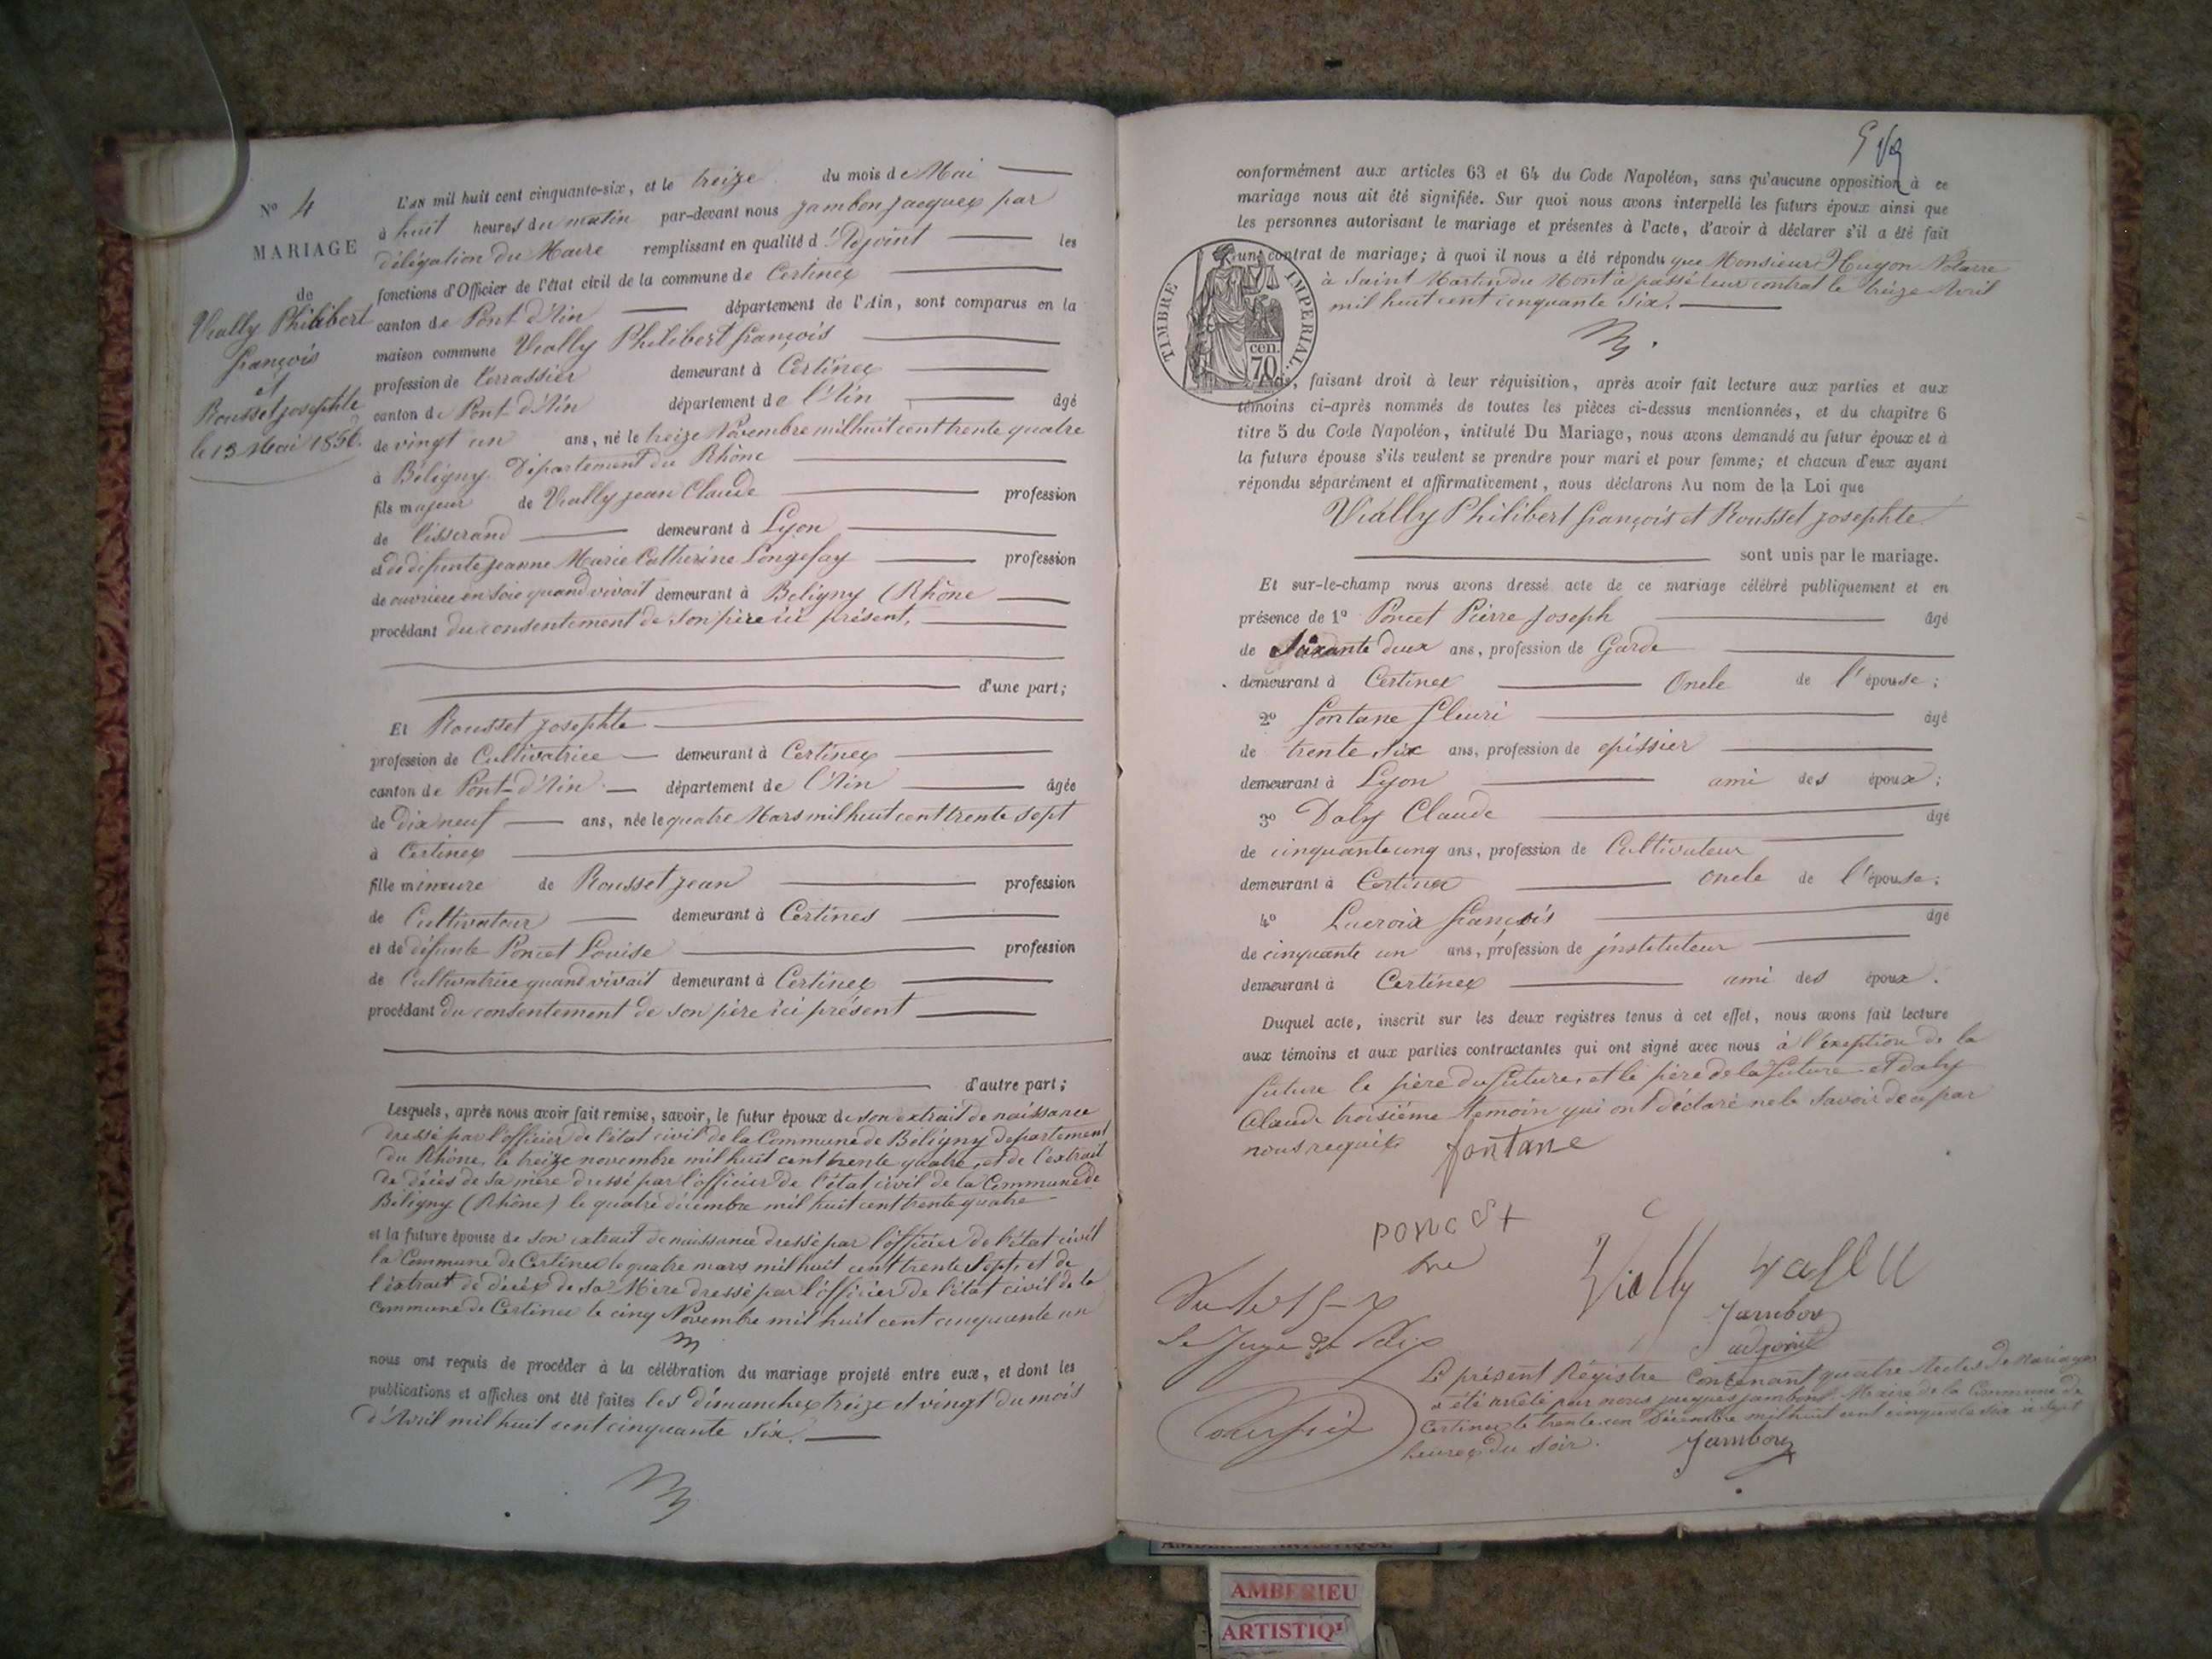 N° 4
MARIAGE
de
Vially Philibert
françois
et
Rousset josephte
le 13 Mai 1856.
L'AN mil huit cent cinquante-six, et le treize du mois de Mai
à huit heures du matin par-devant nous jambon jacques par
délégation du Maire remplissant en qualité d'Adjoint les
fonctions d'Officier de l'état civil de la commune de Certines
canton de Pont d'Ain département de l'Ain, sont comparus en la
maison commune Vially Philibert françois
profession de terrassier demeurant à Certines
canton de Pont-d'Ain département de l'Ain âgé
de vingt un ans, né le treize Novembre mil huit cent trente quatre
à Béligny. Département du Rhône
fils majeur de Vially jean Claude profession
de tisserand demeurant à Lyon
et de défunte jeanne Marie Catherine Longefay profession
de ouvrière en Soie quand vivait demeurant à Beligny (Rhône
procédant du consentement de son père ici présent,
d'une part;
Et Rousset josephte
profession de Cultivatrice demeurant à Certines
canton de Pont-d'Ain département de l'Ain âgée
de dix neuf ans, née le quatre Mars mil huit cent trente sept
à Certines
fille mineure de Rousset jean profession
de Cultivateur demeurant à Certines
et de défunte Poncet Louise profession
de Cultivatrice quand vivait demeurant à Certines
procédant du consentement de son père ici présent
d'autre part;
Lesquels, après nous avoir fait remise, savoir, le futur époux de son extrait de naissance
dressé par l'officier de l'état civil de la Commune de Béligny département
du Rhône, le treize novembre mil huit cent trente quatre, et de l'extrait
de décès de sa mère dressé par l'officier de l'état civil de la Commune de
Béligny (Rhône) le quatre décembre mil huit cent trente quatre
et la future épouse de son extrait de naissance dressé par l'officier de l'état civil
la Commune de Certines le quatre mars mil huit cent trente Sept, et de
l'extrait de décès de sa Mère dressé par l'officier de l'état civil de la
Commune de Certines le cinq Novembre mil huit cent cinquante un
nous ont requis de procéder à la célébration du mariage projeté entre eux, et dont les
publications et affiches ont été faites les dimanches treize et vingt du mois
d'Avril mil huit cent cinquante Six.
conformément aux articles 63 et 64 du Code Napoléon, sans qu'aucune opposition à ce
mariage nous ait été signifiée. Sur quoi nous avons interpellé les futurs époux ainsi que
les personnes autorisant le mariage et présentes à l'acte, d'avoir à déclarer s'il a été fait
un contrat de mariage; à quoi il nous a été répondu que Monsieur Hugon Notaire
à Saint Martin du Mont a passé leur contrat le treize Avril
mil huit cent cinquante Six.
TIMBRE IMPERIAL.
cen.
70
Nous, faisant droit à leur réquisition, après avoir fait lecture aux parties et aux
témoins ci-après nommés de toutes les pièces ci-dessus mentionnées, et du chapitre 6
titre 5 du Code Napoléon, intitulé Du Mariage, nous avons demandé au futur époux et à
la future épouse s'ils veulent se prendre pour mari et pour femme; et chacun d'eux ayant
répondu séparément et affirmativement, nous déclarons Au nom de la Loi que
Vially Philibert françois et Rousset josephte
sont unis par le mariage.
Et sur-le-champ nous avons dressé acte de ce mariage célébré publiquement et en
présence de 1° Poncet Pierre joseph âgé
de Soixante deux ans, profession de Garde
demeurant à Certines Oncle de l'épouse;
2° fontane fleuri âgé
de trente six ans, profession de epissier
demeurant à Lyon ami des époux;
3° Daly Claude âgé
de cinquante cinq ans, profession de Cultivateur
demeurant à Certines oncle de l'épouse;
4° Lacroix françois âgé
de cinquante un ans, profession de instituteur
demeurant à Certines ami des époux.
Duquel acte, inscrit sur les deux registres tenus à cet effet, nous avons fait lecture
aux témoins et aux parties contractantes qui ont signé avec nous à l'exeption de la
future le père du future, et le père de la future et daly
Claude troisième témoin qui ont déclaré ne le savoir de ce par
nous requis
fontane
poncet
Vially
Jambon
adjoint
Le juge de Paix
Le présent Régistre contenant quatre Actes de Mariages
a été arrêté par nous jacques jambon Maire de la Commune de
Certines le trente un Décembre mil huit cent cinquante six à sept
heures du soir.
Jambon
AMBERIEU ARTISTIQUE
AMBERIEU
ARTISTIQ